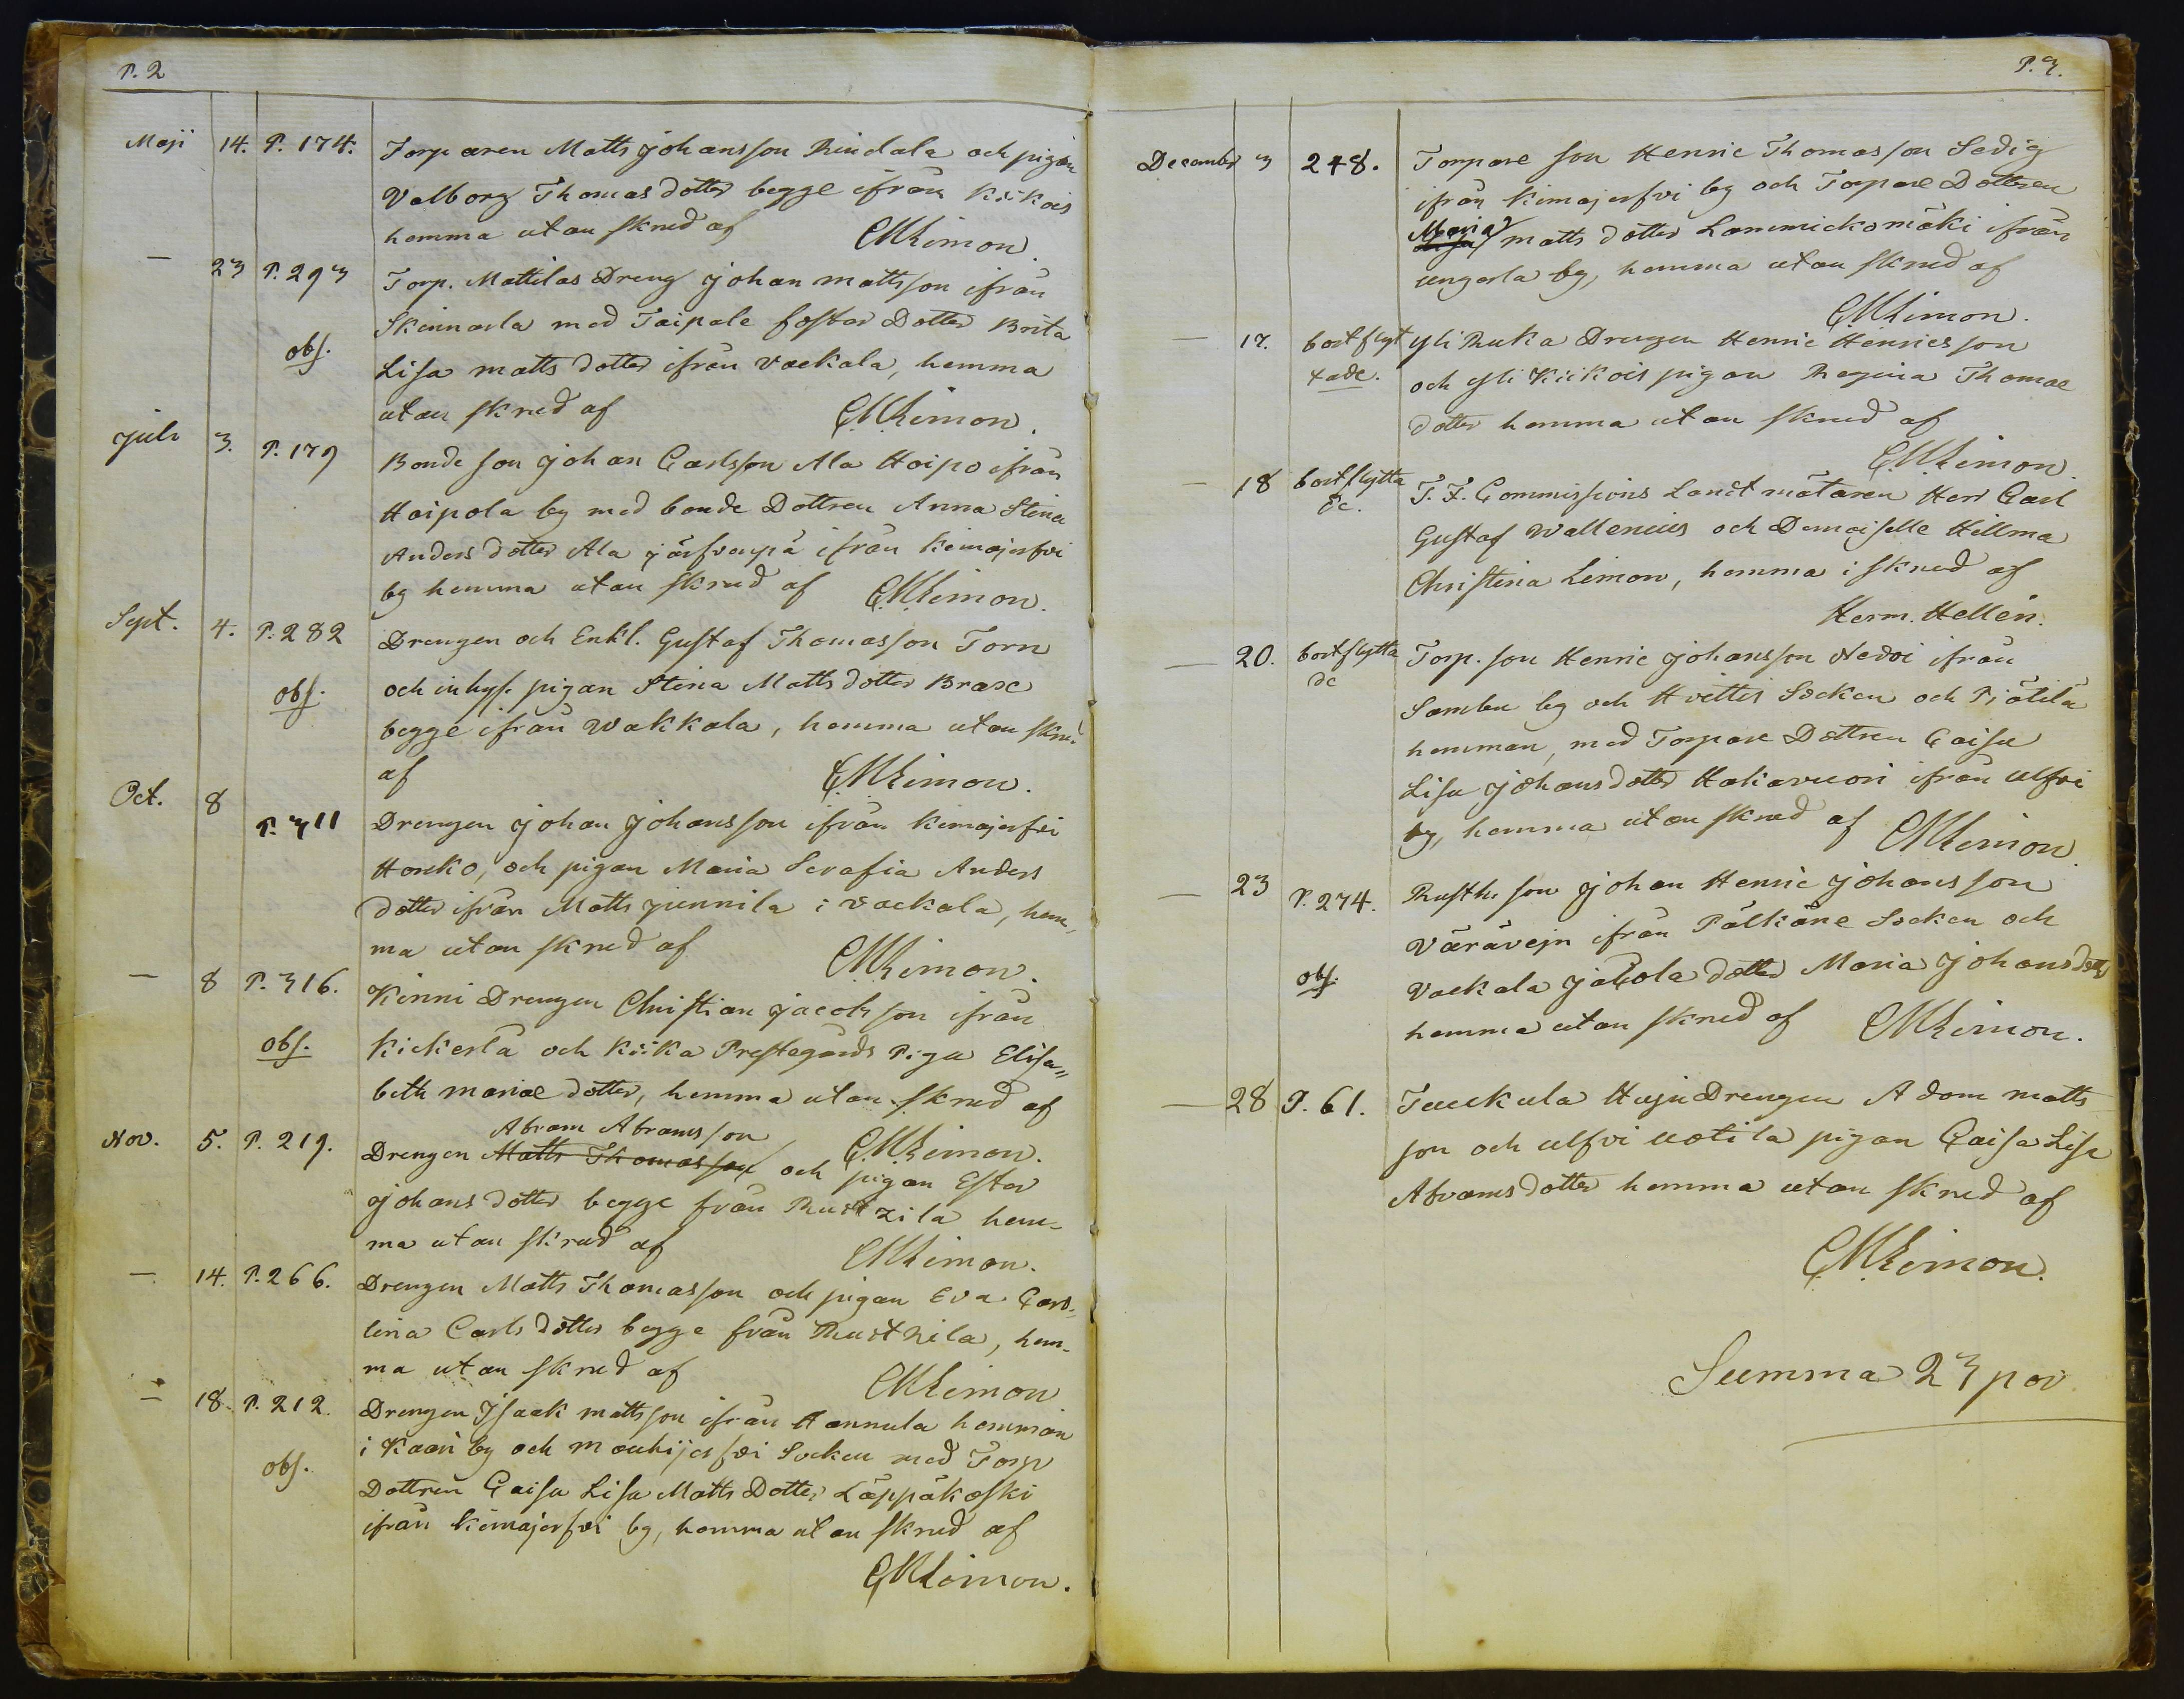 P. 2
Maji 14. P. 174. Torparen Matts Johansson Rindala och pigan
Valborg Thomasdotter begge ifrån Kiikois
hemma utan skrud af CMLimon.
— 23 P. 293 Torp. Mattilas Dreng Johan Mattsson ifrån
Skinnarla med Taipale foster Dotter Brita
obs. Lisa Mattsdotter ifrån Vackala, hemma
utan skrud af CMLimon.
Juli 3. P. 179 Bonde son Johan Carlsson Ala Haipo ifrån
Haipola by med bonde Dottren Anna Stina
Andersdotter Ala Järfvenpä ifrån Kimajerfvi
by hemma utan skrud af CMLimon.
Sept. 4. P. 282 Drengen och Enkl. Gustaf Thomasson Torn
obs. och inhys. pigan Stina Mattsdotter Brax
begge ifrån Wakkala, hemma utan skrud
af CMLimon.
Oct. 8 P. 311 Drengen Johan Johansson ifrån Kimajerfvi
Honko, och pigan Maria Serafia Anders
dotter ifrån Matts Junnila i Vackala, hem„
ma utan skrud af CMLimon.
— 8 P. 316. Kinni Drengen Christian Jacobsson ifrån
obs. Kickerlä och Kiika Prestegårds Piga Elisa„
beth Mariæ dotter, hemma utan skrud af
Abram Abramsson CMLimon.
Nov. 5. P. 219. Drengen Matts Thomasson och pigan Ester
Johansdotter begge från Rustzila hem-
ma utan skrud af CMLimon.
— 14. P. 266. Drengen Matts Thomasson och pigan Eva Caro-
lina Carlsdotter begge från Rusthila, hem-
ma utan skrud af CMLimon
— 18. P. 212. Drengen Isaak Mattsson ifrån Hannula hemman
i by och Mouhijerfvi Socken med Torp
obs. Dottren Caisa Lisa Matts Dotter Läppäkoski
ifrån Kimajerfvi by, hemma utan skrud af
CMLimon.
P. 3.
December 3 248. Torpare son Henric Thomasson Sedig
ifrån Kimajerfvi by och Torpare Dottren
Maria Mattsdotter Lammickomäki ifrån
ungarla by, hemma utan skrud af
CMLimon.
— 17. bortflyt Yli Ruka Drengen Henric Henricsson
tade. och Yli Kiikois pigan Regina Thomæ
dotter hemma utan skrud af
CMLimon
— 18 bortflytta T. F. Commissions Landtmätaren Herr Carl
de. Gustaf Wallenius och Demoiselle Hillma
Christina Limon, hemma i skrud af
Herm. Hellén.
— 20. bortflytta Torp. son Henric Johansson Nedoi ifrån
de Sambu by och Hvittis Socken och Pjätilä
hemman, med Torpare Dottren Caisa
Lisa Johansdotter Hakavuori ifrån Ulfvi
by, hemma utan skrud af CMLimon.
— 23 P. 274. Rusth. son Johan Henric Johansson
Värävejn ifrån Pälkäne Socken och
obs. Vackala Jaĉola dotter Maria Johansdotter
hemma utan skrud af CMLimon.
— 28 P. 61. Tauckula Huju Drengen Adam Matts
son och Ulfvi Uotila pigan Caisa Lisa
Abramsdotter hemma utan skrud af
CMLimon.
Summa 23 par